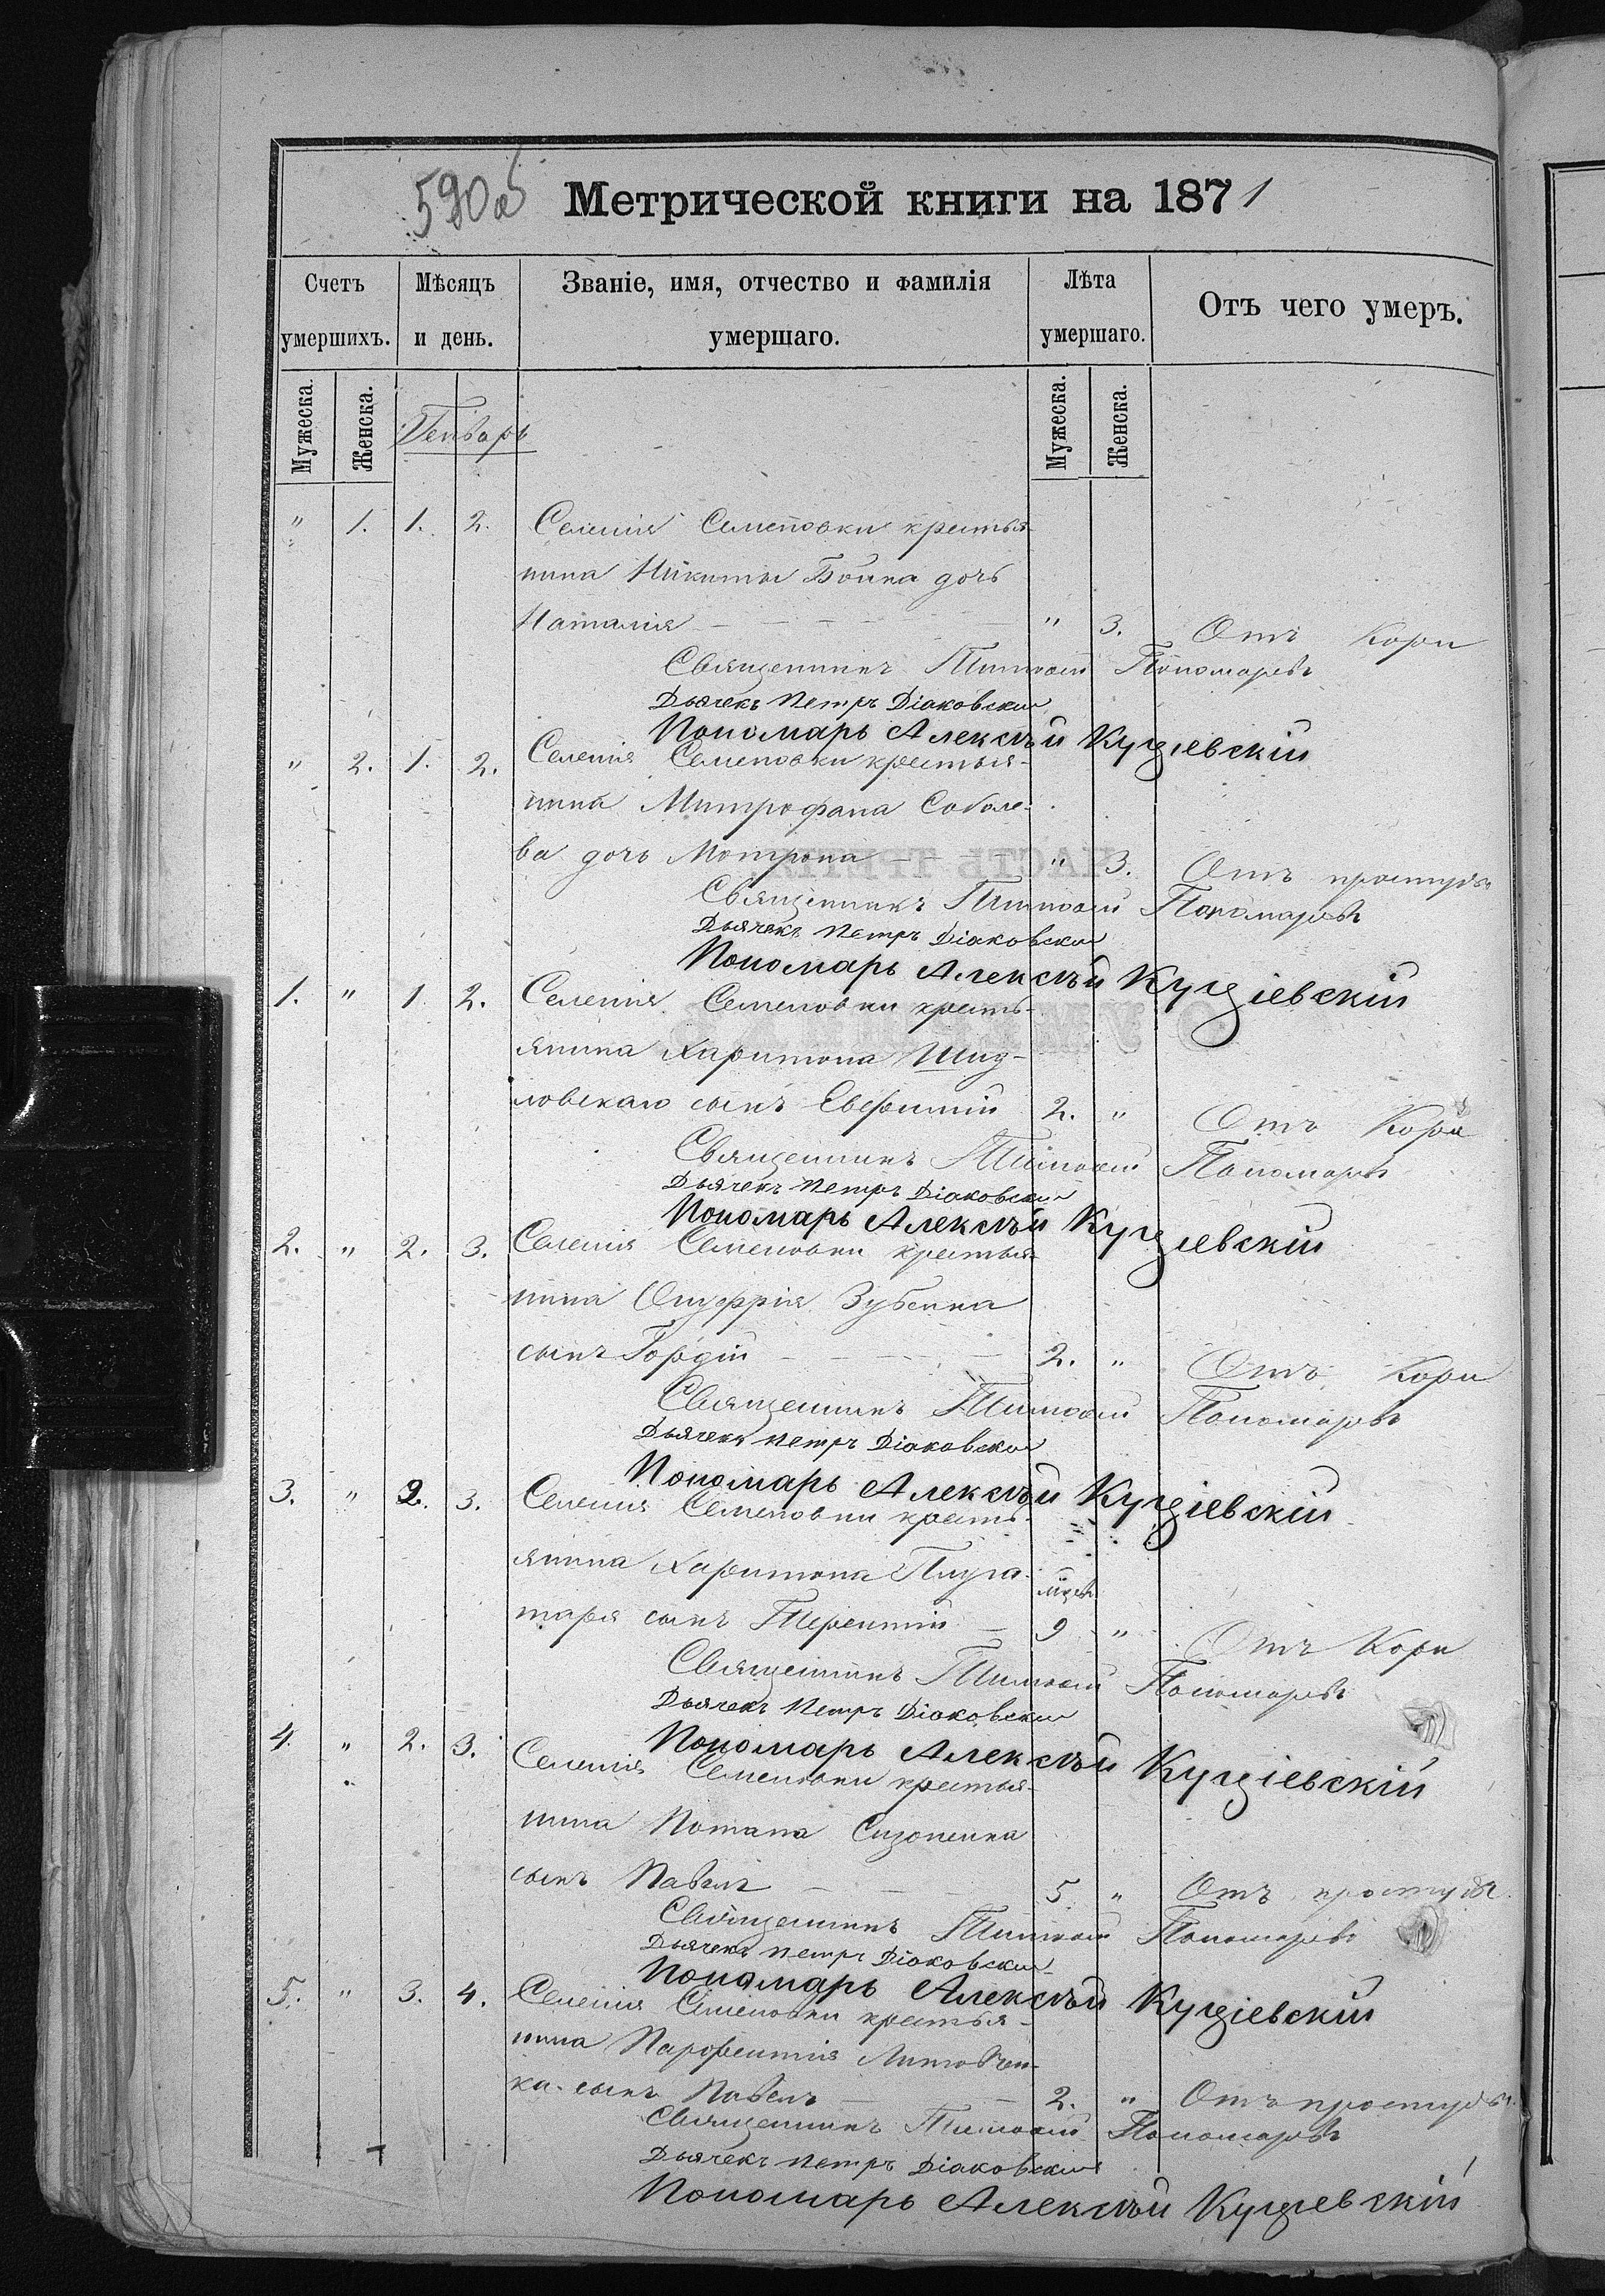 590об Метрической книги на 1871
Счетъ умершихъ. Мѣсяцъ и день. Званіе, имя, отчество и фамилія умершаго. Лѣта умершаго. Отъ чего умеръ.
Мужеска. Женска. Мужеска. Женска.
Генварь
" 1. 1. 2. Селенія Семеновки крестья-
нина Никиты Бойка дочь
Наталія " 3. Отъ Кори
Священникъ Тимоѳей Пономаревъ
Дьячекъ Петръ Діаковскій
Пономарь Алексѣй Кущіевскій
" 2. 1. 2. Селенія Семеновки крестья-
нина Митрофана Соболе-
ва дочь Мотрона " 3. Отъ простуды
Священникъ Тимоѳей Пономаревъ
Дьячекъ Петръ Діаковскій
Пономарь Алексѣй Кущіевскій
1. " 1 2. Селенія Семеновки кресть-
янина Харитона Шид-
ловскаго сынъ Евфимій 2. " Отъ Кори
Священникъ Тимоѳей Пономаревъ
Дьячекъ Петръ Діаковскій
Пономарь Алексѣй Кущіевскій
2. " 2. 3. Селенія Семеновки крестья-
нина Онуфрія Зубенка
сынъ Гордій 2. " Отъ Кори
Священникъ Тимоѳей Пономаревъ
Дьячекъ Петръ Діаковскій
Пономарь Алексѣй Кущіевскій
3. " 2. 3. Селенія Семеновки кресть-
янина Харитона Плуга-
таря сынъ Терентій мцев 9 " Отъ Кори
Священникъ Тимоѳей Пономаревъ
Дьячекъ Петръ Діаковскій
Пономарь Алексѣй Кущіевскій
4. " 2. 3. Селенія Семеновки крестья-
нина Потапа Сизоненка
сынъ Павелъ 5 " Отъ простуды
Священникъ Тимоѳей Пономаревъ
Дьячекъ Петръ Діаковскій
Пономарь Алексѣй Кущіевскій
5. " 3. 4. Селенія Семеновки крестья-
нина Парфентія Литовчен-
ка сынъ Павелъ 2. " Отъ простуды.
Священникъ Тимоѳей Пономаревъ
Дьячекъ Петръ Діаковскій
Пономарь Алексѣй Кущіевскій